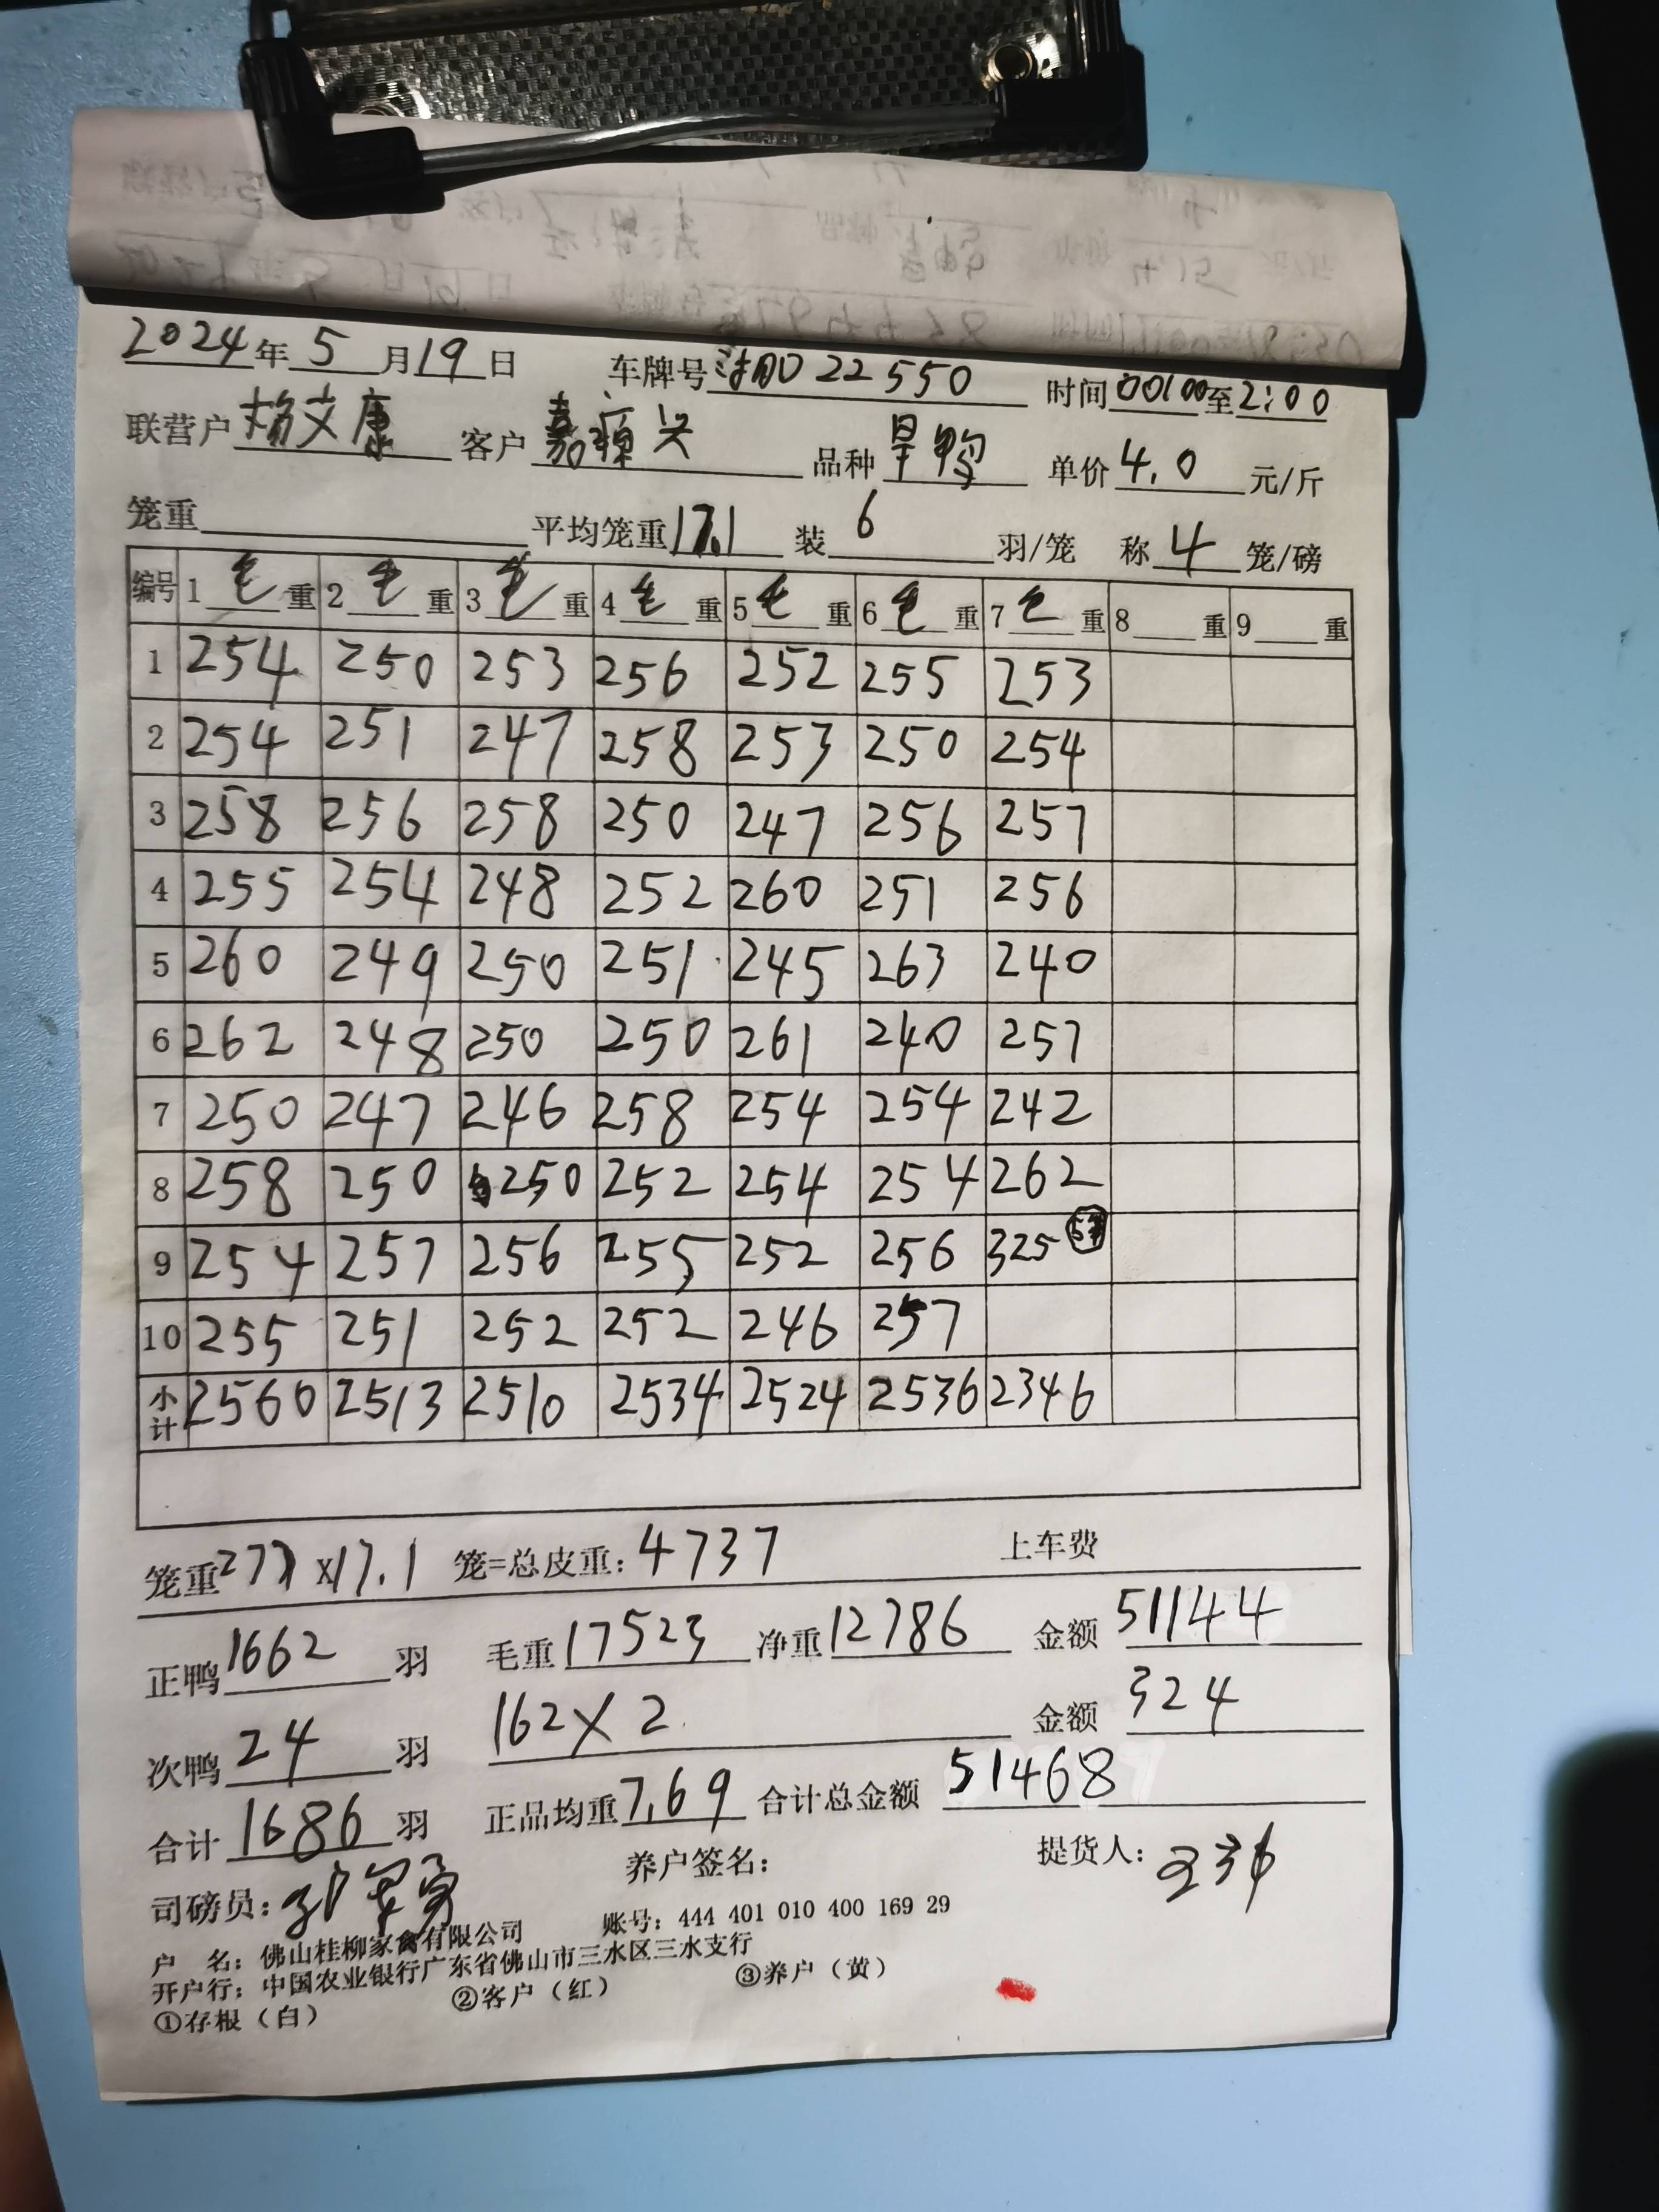 2024年 5 月 19 日 车牌号 D22550 时间 00:00 至 2:00
联营户 杨文康 客户 嘉源兴 品种 旱鸭 单价 4.0 元/斤
笼重 平均笼重 17.1 装 6 羽/笼 称 4 笼/磅
编号 1 毛 重 2 毛 重 3 毛 重 4 毛 重 5 毛 重 6 毛 重 7 毛 重 8 重 9 重
1 254 250 253 256 252 255 253
2 254 251 247 258 253 250 254
3 258 256 258 250 247 256 257
4 255 254 248 252 260 251 256
5 260 249 250 251 245 263 240
6 262 248 250 250 261 240 257
7 250 247 246 258 254 254 242
8 258 250 250 252 254 254 262
9 254 257 256 255 252 256 325
10 255 251 252 252 246 257
小计 2560 2513 2510 2534 2524 2536 2346
笼重 277 x17.1 笼=总皮重: 4737 上车费
正鸭 1662 羽 毛重 17523 净重 12786 金额 51144
次鸭 24 羽 162 X 2 金额 324
合计 1686 羽 正品均重 7.69 合计总金额 51468
司磅员: 养户签名: 提货人:
户 名: 佛山桂柳家禽有限公司 账号: 444 401 010 400 169 29
开户行: 中国农业银行广东省佛山市三水区三水支行
①存根(白) ②客户(红) ③养户(黄)